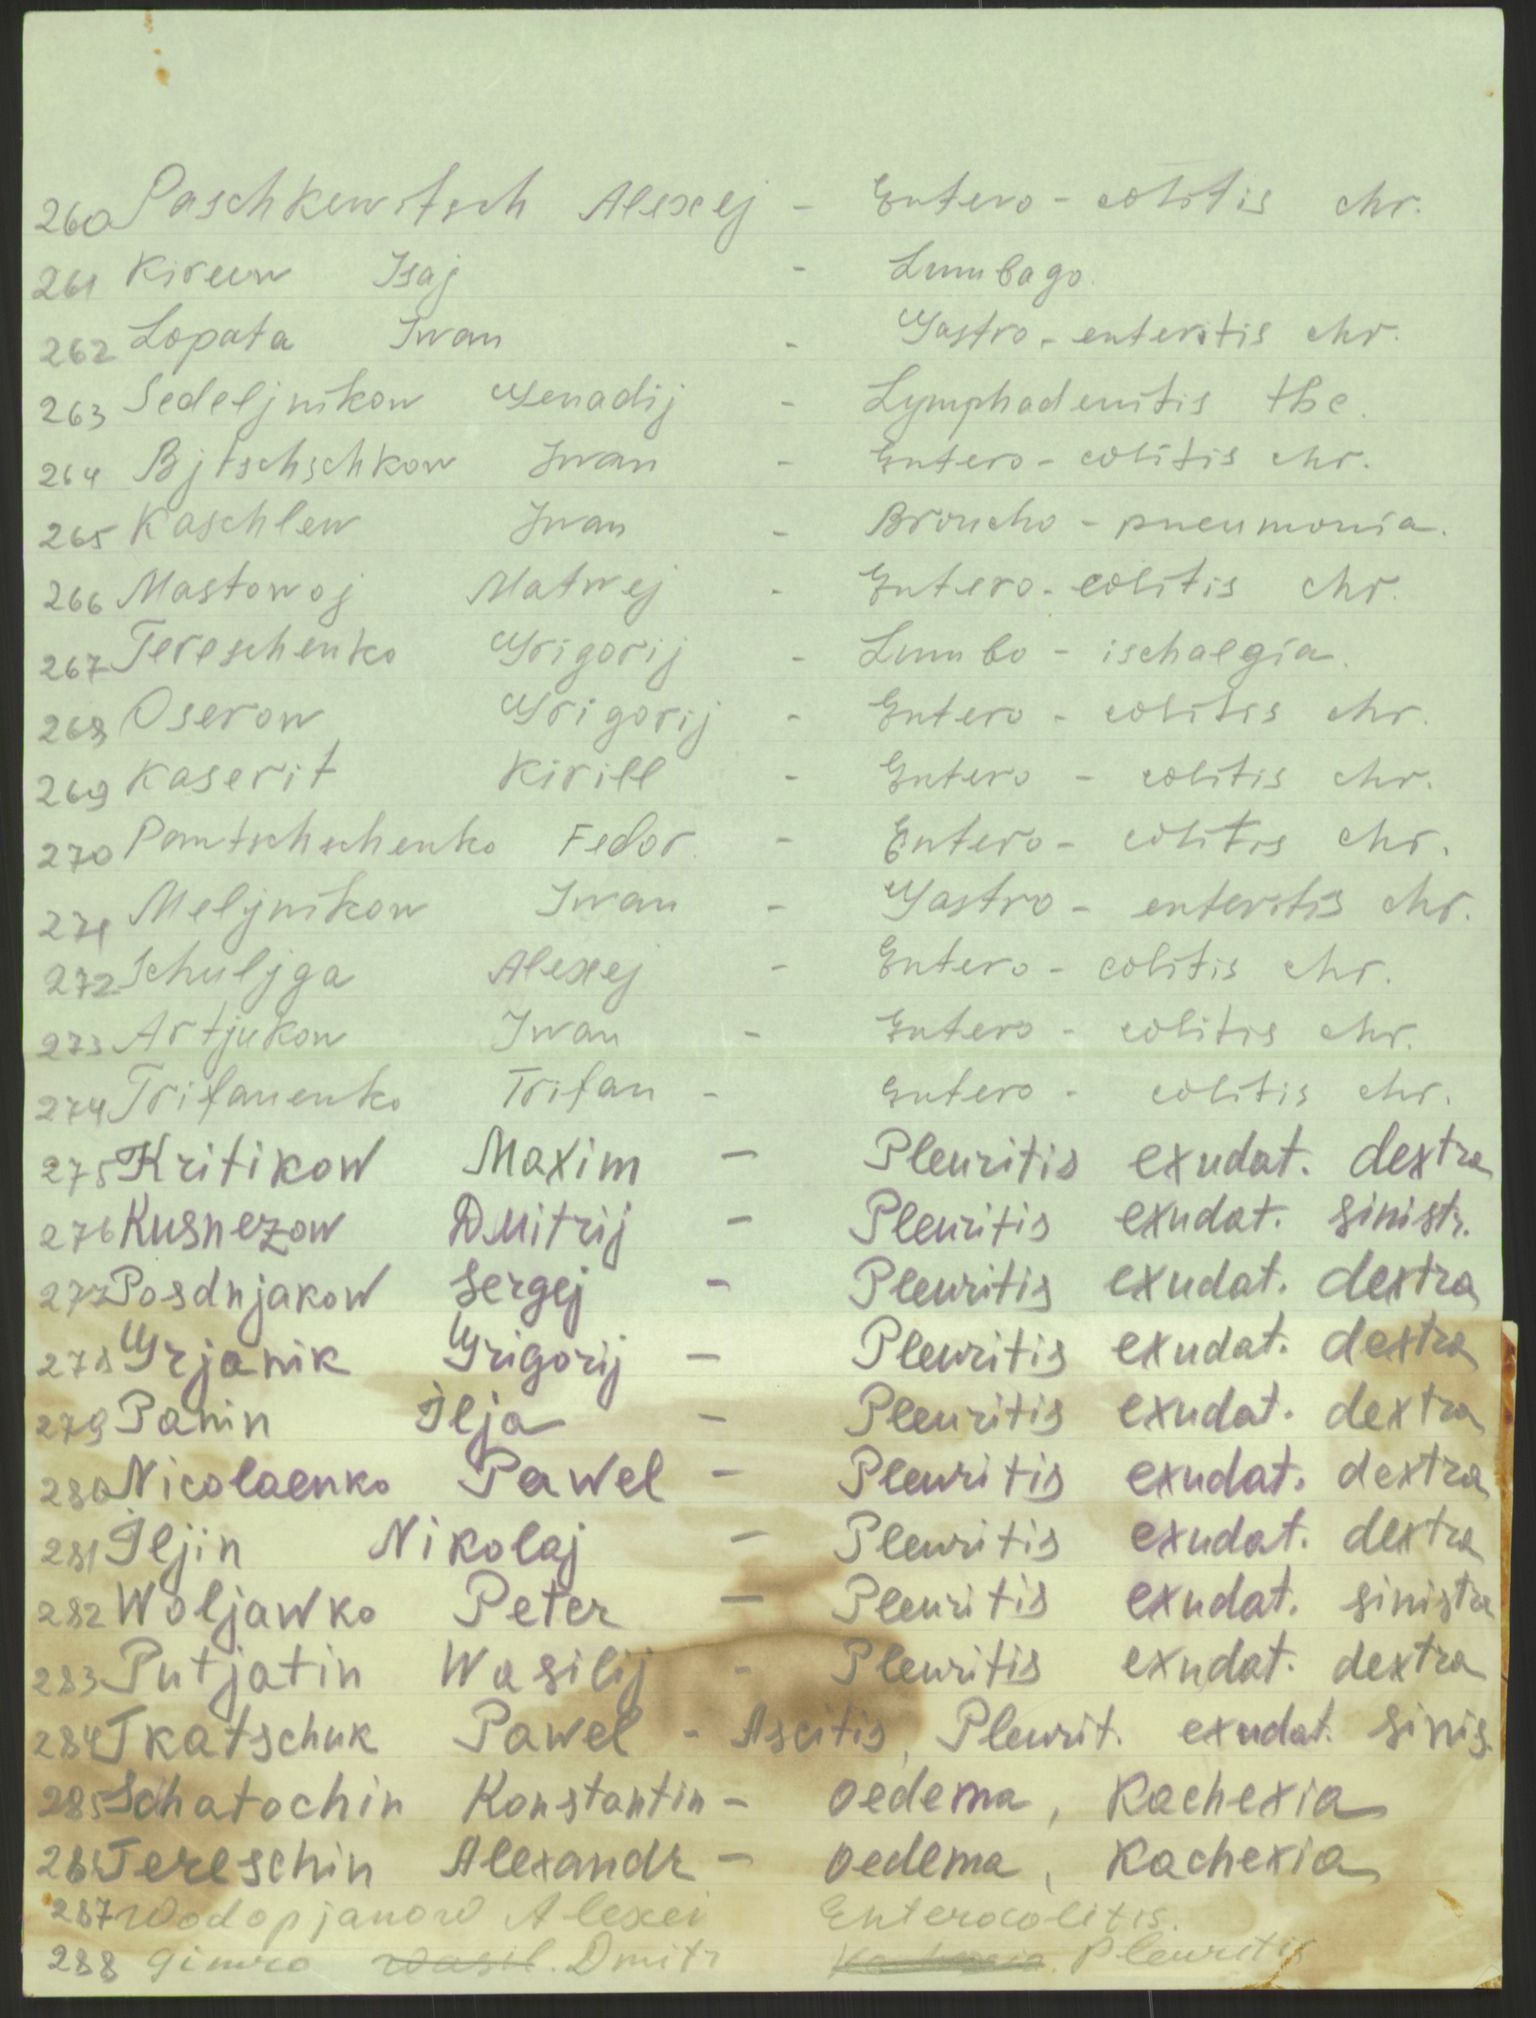 260 Paschkewitsch Alexej - Entero - colitis chr.
261 Kireew Isaj - Lumbago.
262 Lopata Iwan - Gastro - enteritis chr.
263 Sedeljnikow Genadij - Lymphadenitis tbc.
264 Bjtschschkow Iwan - Entero - colitis chr.
265 Kaschlew Iwan - Broncho - pneumonia.
266 Mastowoj Matwej - Entero - colitis chr.
267 Tereschenko Grigorij - Lumbo - ischalgia.
268 Oserow Grigorij - Entero - colitis chr.
269 Kaserit Kirill - Entero - colitis chr.
270 Pamtschschenko Fedor - Entero - colitis chr.
271 Meljnikow Iwan - Gastro - enteritis chr.
272 Schuljga Alexej - Entero - colitis chr.
273 Artjukow Iwan - Entero - colitis chr.
274 Trifanenko Trifan - Entero - colitis chr.
275 Kritikow Maxim - Pleuritis exudat. dextra
276 Kusnezow Dmitrij - Pleuritis exudat. sinistr.
277 Posdnjakow Sergej - Pleuritis exudat. dextra
278 Grjanik Grigorij - Pleuritis exudat. dextra
279 Panin Ilja - Pleuritis exudat. dextra
280 Nicolaenko Pawel - Pleuritis exudat. dextra
281 Iljin Nikolaj - Pleuritis exudat. dextra
282 Woljawko Peter - Pleuritis exudat. sinistra
283 Putjatin Wasilij - Pleuritis exudat. dextra
284 Tkatschuk Pawel - Ascitis, Pleurit. exudat. sinis.
285 Schatochin Konstantin - oedema, Kachexia
286 Tereschin Alexandr - oedema, Kachexia
287 Wodopjanow Alexei Enterocolitis.
288 Wasil. Dmitr Pleuritis